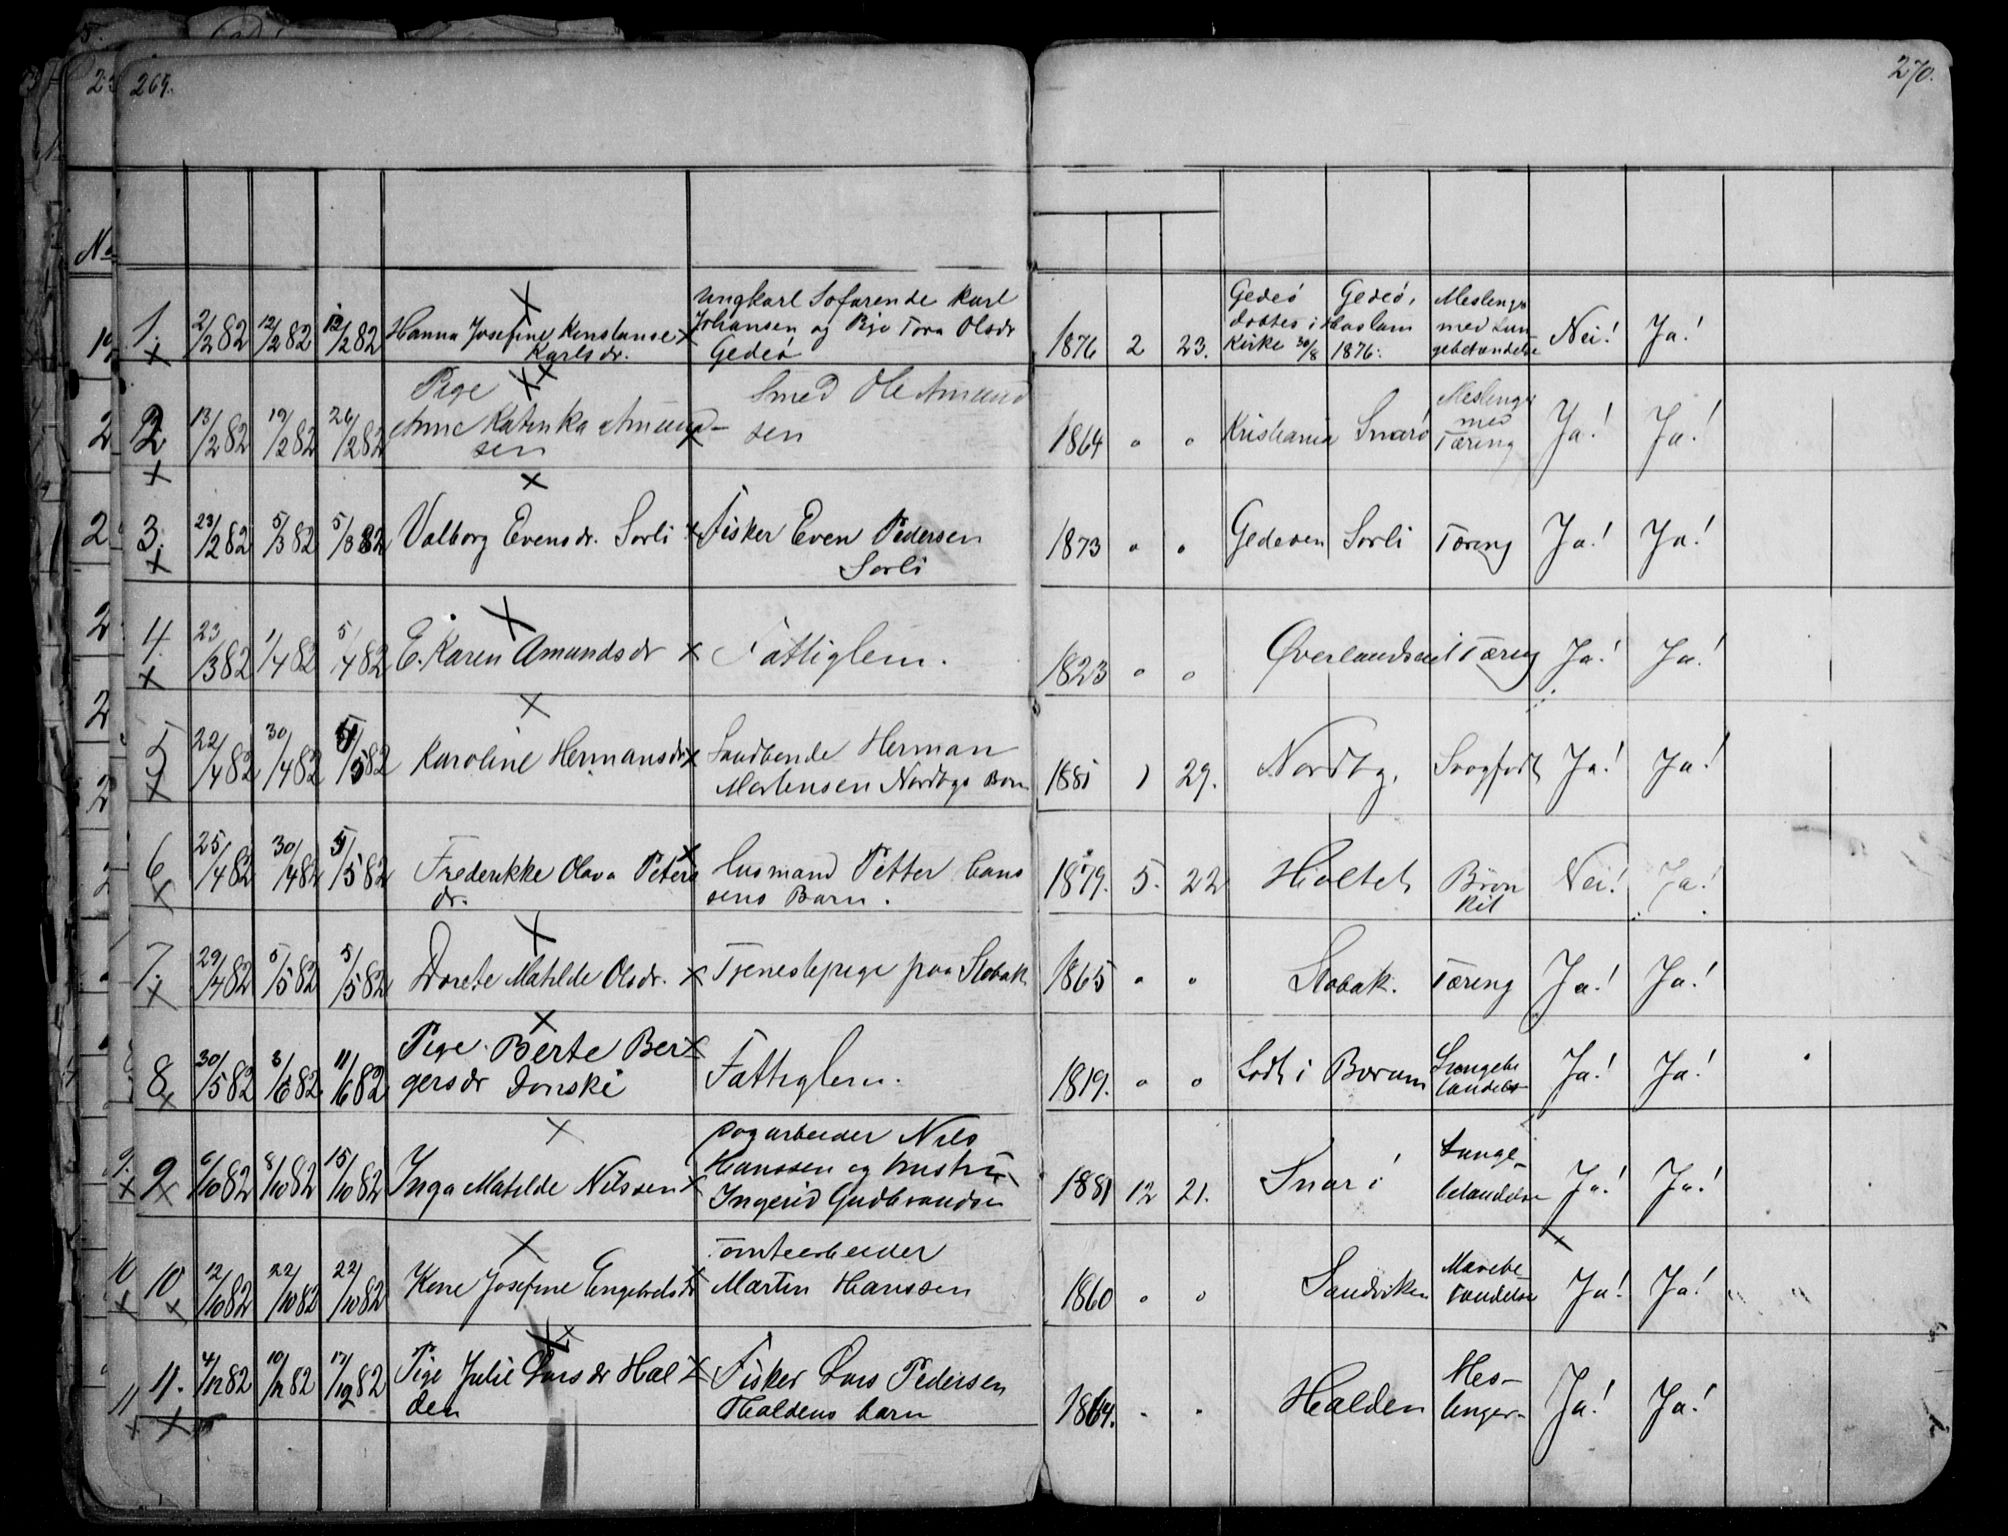 269.
270.
No
1. 2/2 82 12/2 82 12/2 82 Hanna Josefine Konstanse Karlsdr. Ungkarl Sofarende Karl Johansen og Pige Tora Olsdr Gedeö 1876 2 23. Gedeö döbtes i Haslum Kirke 30/8 1876. Gedeö, Meslinger med Lungebetændelse Nei! Ja!
2 13/2 82 19/2 82 26/2 82 Pige Anne Katinka Amundsen Smed Ole Amundsen 1864 " " Kristiania Snarö Meslinger med Tæring Ja! Ja!
3. 23/2 82 5/3 82 5/3 82 Valborg Evensdr. Sorli Fisker Even Pedersen Sorli 1873 " " Gedeøen Sorli Tæring Ja! Ja!
4. 23/3 82 1/4 82 5/4 82 E. Karen Amundsdr Fattiglem. 1823 " " Øverlandseiet Tæring Ja! Ja!
5 22/4 82 30/4 82 5/5 82 Karoline Hermansdr Herman Mortensen Nordbys Barn 1881 1 29. Nordby. Ja! Ja!
6 25/4 82 30/4 82 5/5 82 Frederikke Olava Petersdr. Husmand Petter Hanssens Barn. 1879. 5. 22 Holtet Bronkit Nei! Ja!
7. 29/4 82 5/5 82 5/5 82 Dorete Matilde Olsdr. Tjenestepige paa Slobak 1865 " " Slobak. Tæring Ja! Ja!
8 30/5 82 3/6 82 11/6 82 Pige Berte Bergersdr Donski Fattiglem. 1819. " " Födt i Bærum Lungebetandelse Ja! Ja!
9 6/10 82 8/10 82 15/10 82 Inga Matilde Nilssen Dagarbeider Nils Hanssen og hustru Ingerid Gudbrandsen 1881 12 21. Snarö Lungebetandelse Ja! Ja!
10 12/10 82 22/10 82 22/10 82 Kone Josefine Engebretsdr Tomtearbeider Martin Hanssen 1860 " " Sandviken Mavebetandelse Ja! Ja!
11. 4/12 82 10/12 82 17/12 82 Pige Julie Larsdr Halden Fisker Lars Pedersen Haldens barn 1864. " " Halden Meslinger Ja! Ja!